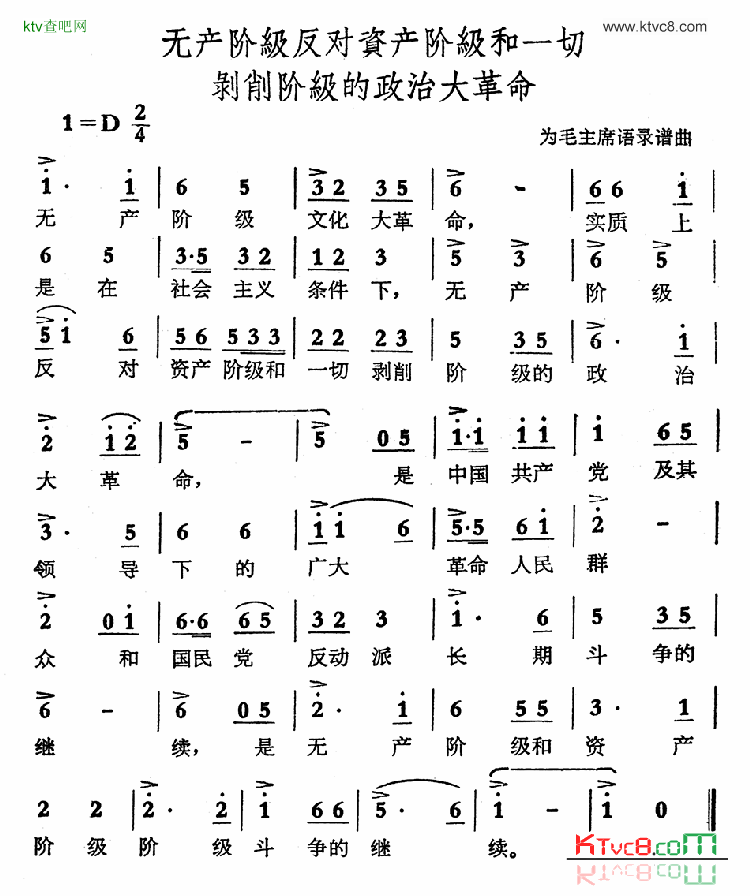 ktv查吧网
www.ktvc8.com
无产阶級反对資产阶級和一切
剝削阶級的政治大革命
1=D 2/4
为毛主席语录谱曲
1· 1 | 6 5 | 3 2 3 5 | 6 - | 6 6 1 |
无 产 阶 级 文化 大革 命， 实质 上
6 5 | 3·5 3 2 | 1 2 3 | 5 3 | 6 5 |
是 在 社会 主义 条件 下， 无 产 阶 级
5 1 6 | 5 6 5 3 3 | 2 2 2 3 | 5 3 5 | 6· 1 |
反 对 资产 阶级和 一切 剥削 阶 级的 政 治
2 1 2 | 5 - | 5 0 5 | 1·1 1 1 | 1 6 5 |
大 革 命， 是 中国 共产 党 及其
3· 5 | 6 6 | 1 1 6 | 5·5 6 1 | 2 - |
领 导 下 的 广大 革命 人民 群
2 0 1 | 6·6 6 5 | 3 2 3 | 1· 6 | 5 3 5 |
众 和 国民 党 反动 派 长 期 斗 争的
6 - | 6 0 5 | 2· 1 | 6 5 5 | 3· 1 |
继 续， 是 无 产 阶 级和 资 产
2 2 | 2· 2 | 1 6 6 | 5· 6 | 1 - | 1 0 ‖
阶 级 阶 级 斗 争的 继 续。
KTvc8.com